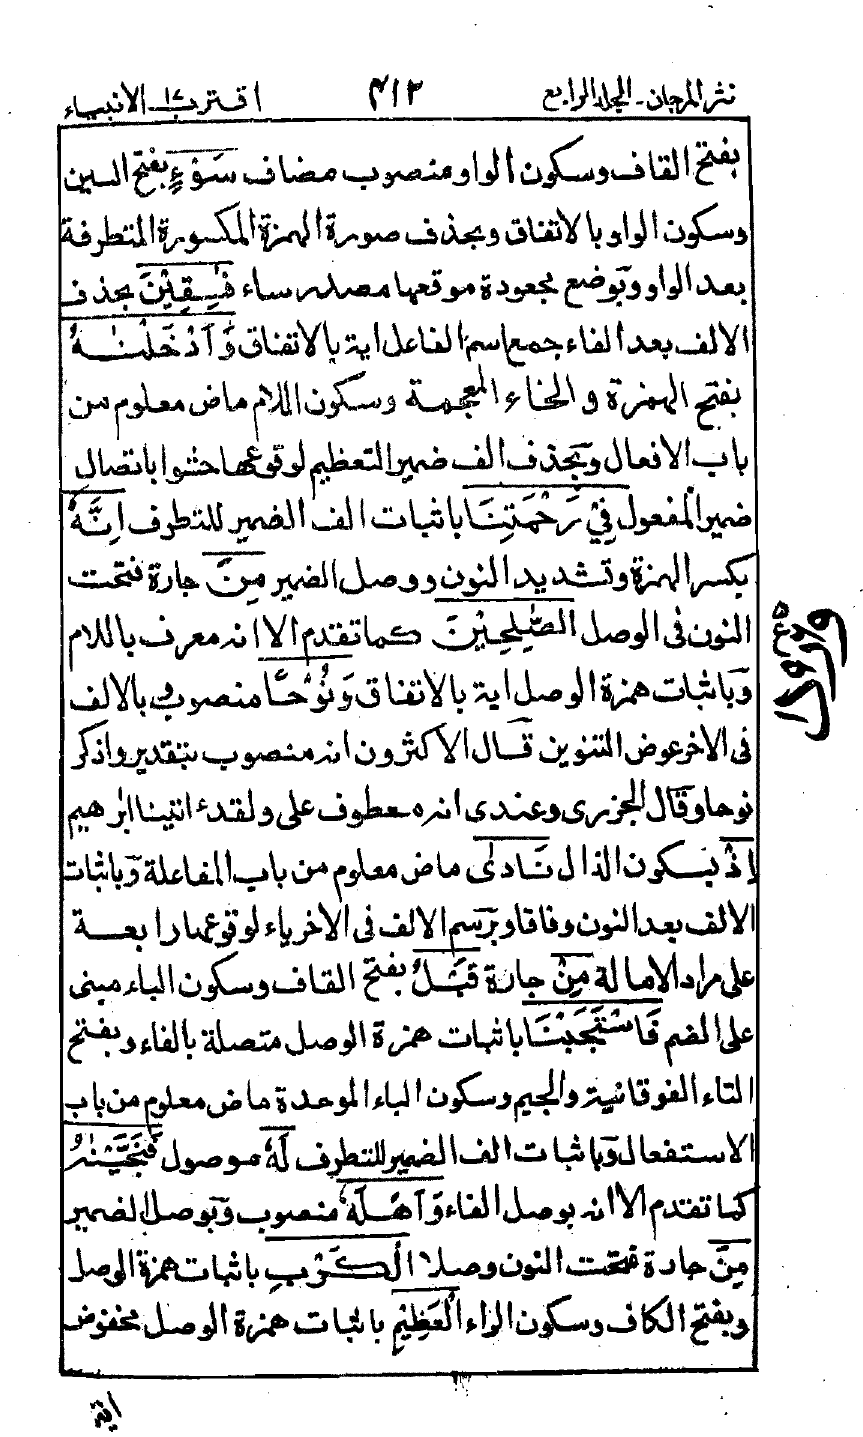 نثر المرجان۔ الجلد الرابع ٤١٣ اقترب ١٧ الانبياء
بفتح القاف وسكون الواو منصوب مضاف سَوْءٍ بفتح السين
وسكون الواو بالاتفاق وبحذف صورة الهمزة المكسورة المتطرفة
بعد الواو وبوضع مجعودة موقعها مصدر ساء فٰسِقِيْنَ بحذف
الالف بعد الفاء جمع اسم الفاعل اية بالاتفاق وَاَدْخَلْنٰهُ
بفتح الهمزة والخاء المعجمة وسكون اللام ماض معلوم من
باب الافعال وبحذف الف ضمير التعظيم لوقوعها حشوا باتصال
ضمير المفعول فِيْ رَحْمَتِنَا باثبات الف الضمير للتطرف اِنَّهٗ
بكسر الهمزة وتشديد النون ووصل الضمير مِنَ جارة فتحت
النون فى الوصل الصّٰلِحِيْنَ كما تقدم الا انه معرف باللام
وباثبات همزة الوصل اية بالاتفاق وَنُوْحًا منصوب وبالالف
فى الاخر عوض التنوين قال الاكثرون انه منصوب بتقدير واذكر
نوحا وقال الجزرى وعندى انه معطوف على ولقدء اتينا ابرٰهيم
اِذْ بسكون الذال نَادٰى ماض معلوم من باب المفاعلة وباثبات
الالف بعد النون وفاقا وبرسم الالف فى الاخر ياء لوقوعها رابعة
على مراد الامالة مِنْ جارة قَبْلُ بفتح القاف وسكون الباء مبنى
على الضم فَاسْتَجَبْنَا باثبات همزة الوصل متصلة بالفاء وبفتح
التاء الفوقانية والجيم وسكون الباء الموحدة ماض معلوم من باب
الاستفعال وباثبات الف الضمير للتطرف لَهٗ موصول فَنَجَّيْنٰهُ
كما تقدم الا انه بوصل الفاء وَاَهْلَهٗ منصوب وبوصل الضمير
مِنَ جارة فتحت النون وصلا الْكَرْبِ باثبات همزة الوصل
وبفتح الكاف وسكون الراء الْعَظِيْمِ باثبات همزة الوصل مخفوض
اية